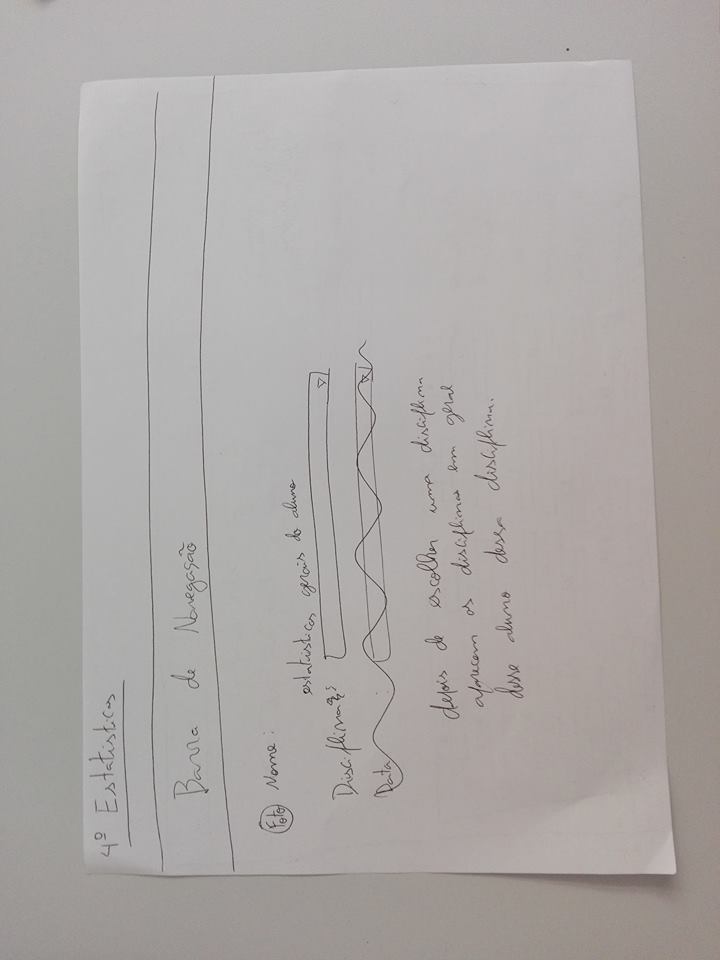 4º Estatísticas
Barra de Navegação
Foto Nome:
estatísticas gerais do aluno
Disciplina
Data
depois de escolher uma disciplina
aparecem as disciplinas em geral
desse aluno dessa disciplina.